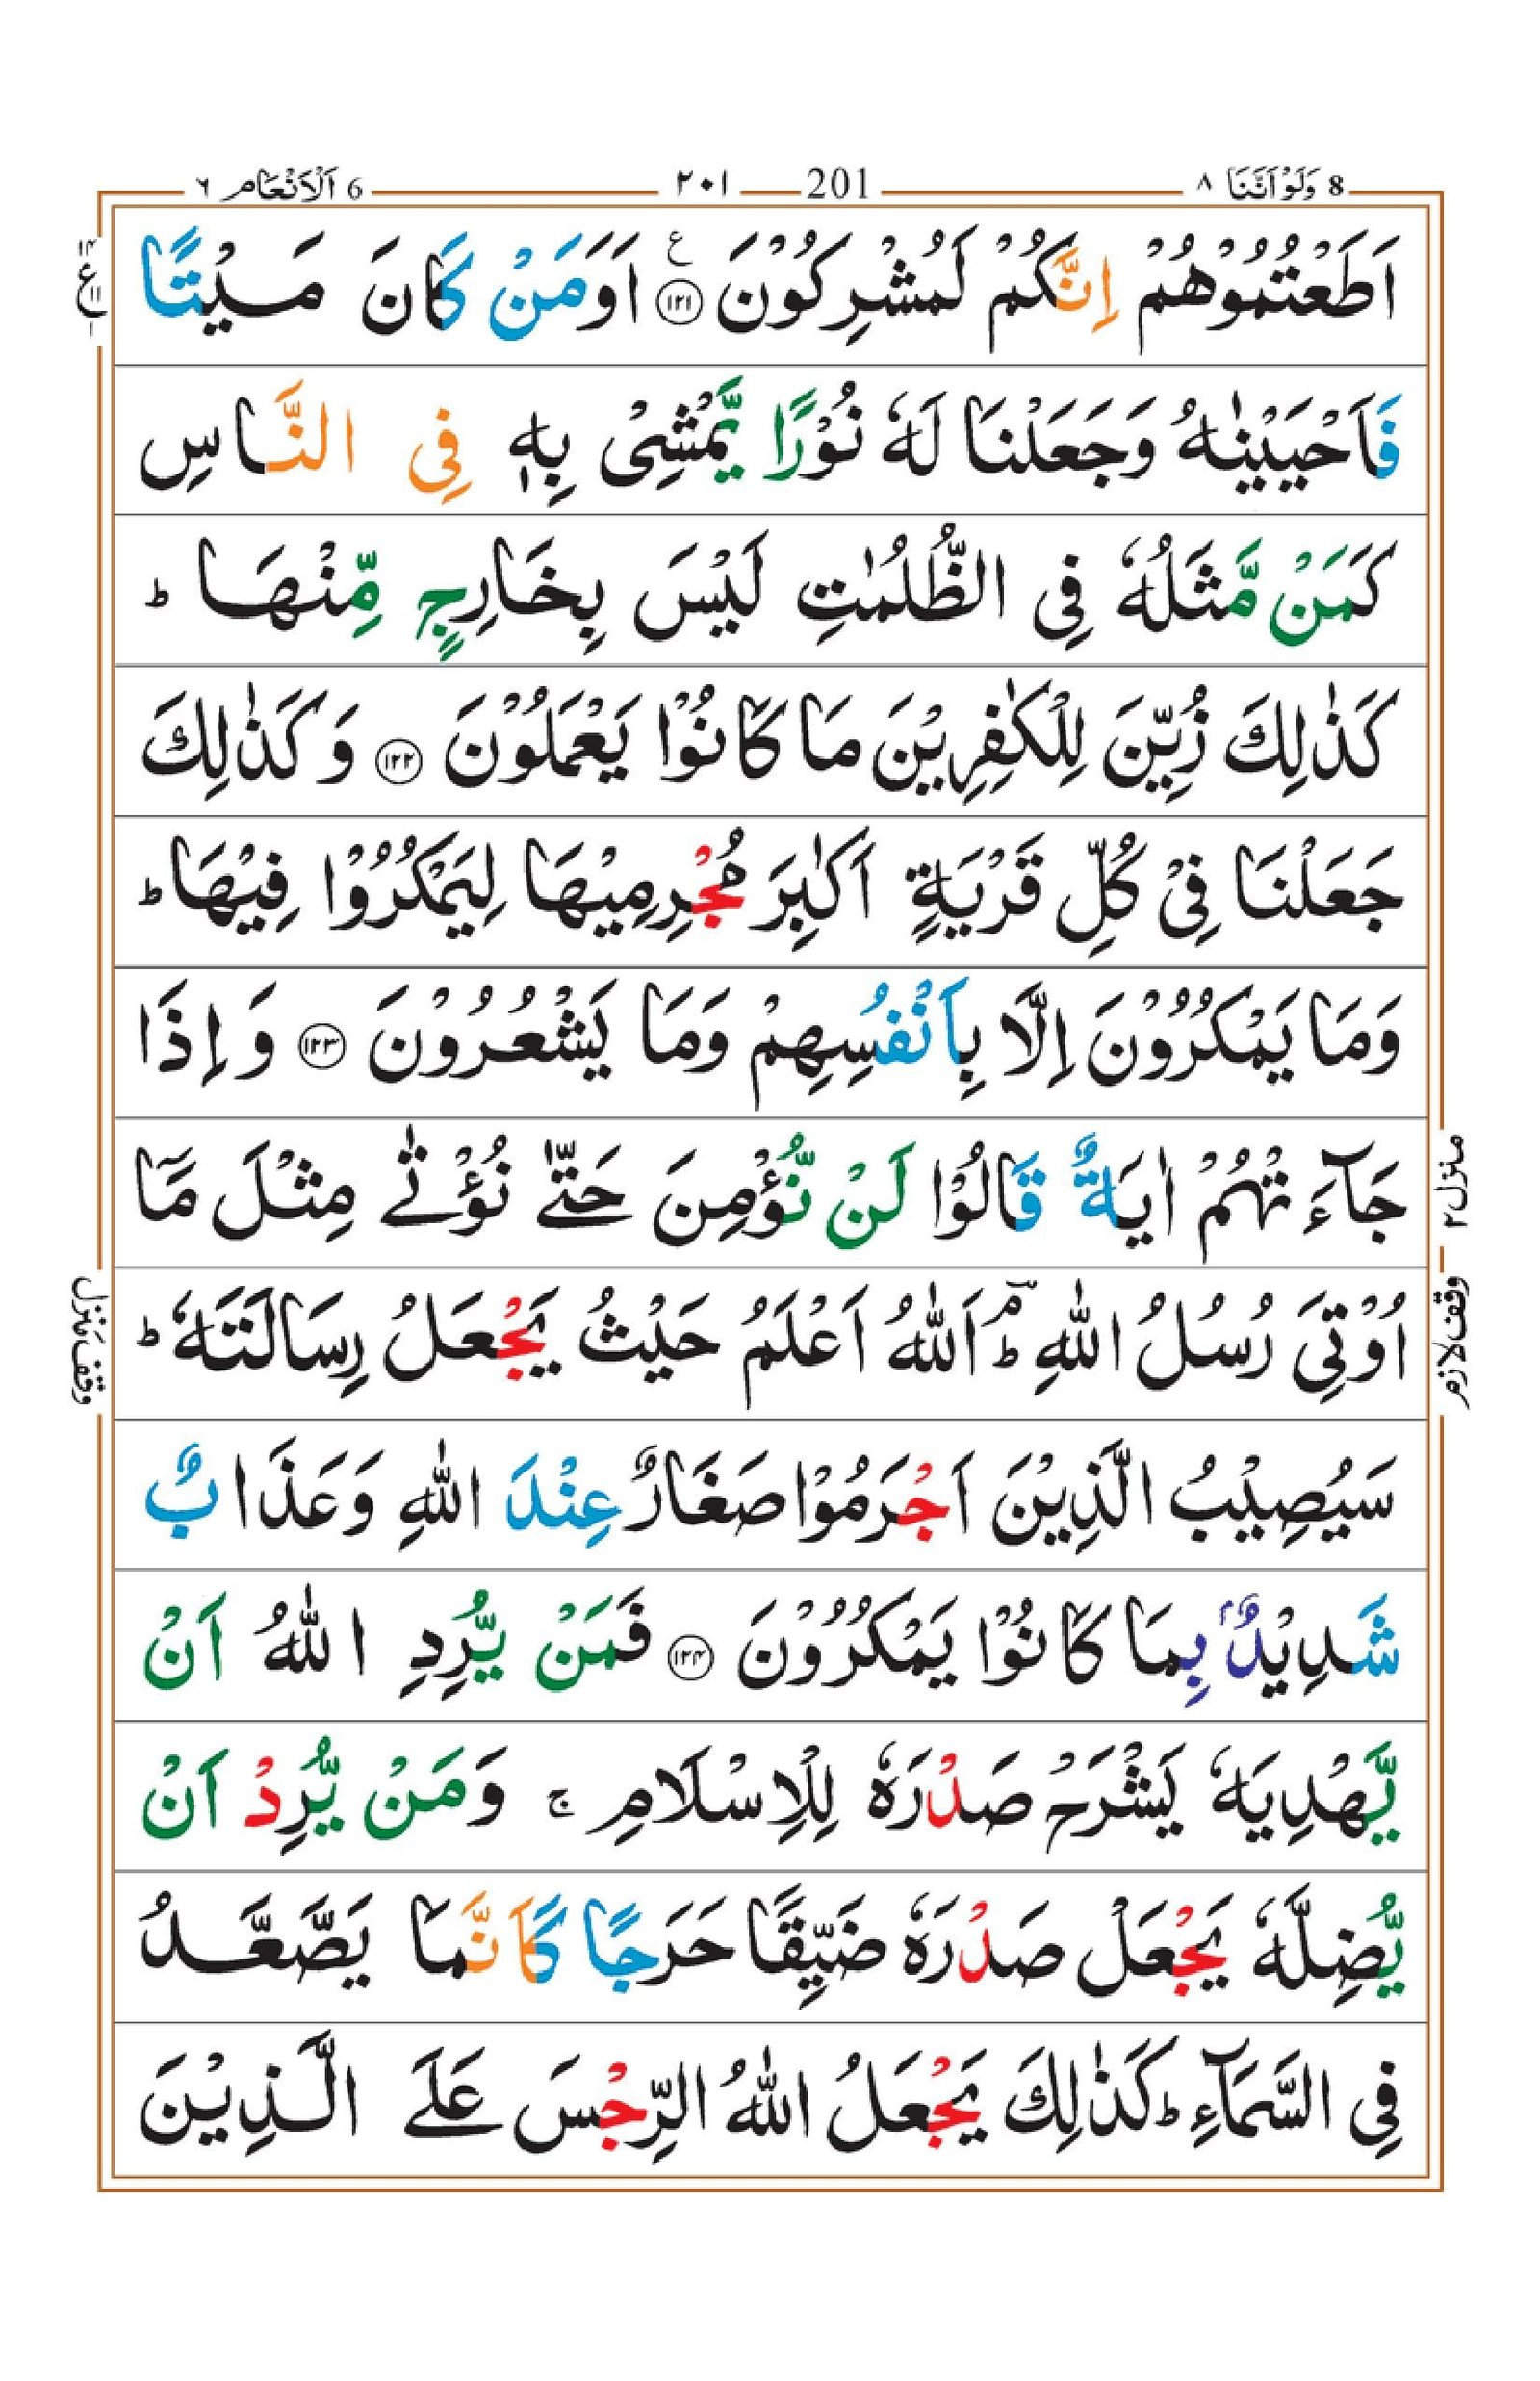 8 وَلَوْ اَنَّنَا ٨
201 ٢٠١
6 اَلْاَنْعَام ٦
اَطَعْتُمُوْهُمْ اِنَّكُمْ لَمُشْرِكُوْنَ ﴿۱۲۱﴾ ع اَوَمَنْ كَانَ مَيْتًا
فَاَحْيَيْنٰهُ وَجَعَلْنَا لَهٗ نُوْرًا يَّمْشِىْ بِهٖ فِى النَّاسِ
كَمَنْ مَّثَلُهٗ فِى الظُّلُمٰتِ لَيْسَ بِخَارِجٍ مِّنْهَا ؕ
كَذٰلِكَ زُيِّنَ لِلْكٰفِرِيْنَ مَا كَانُوْا يَعْمَلُوْنَ ﴿۱۲۲﴾ وَكَذٰلِكَ
جَعَلْنَا فِىْ كُلِّ قَرْيَةٍ اَكٰبِرَ مُجْرِمِيْهَا لِيَمْكُرُوْا فِيْهَا ؕ
وَمَا يَمْكُرُوْنَ اِلَّا بِاَنْفُسِهِمْ وَمَا يَشْعُرُوْنَ ﴿۱۲۳﴾ وَاِذَا
جَآءَتْهُمْ اٰيَةٌ قَالُوْا لَنْ نُّؤْمِنَ حَتّٰى نُؤْتٰى مِثْلَ مَآ
اُوْتِىَ رُسُلُ اللّٰهِ ؕۘ اَللّٰهُ اَعْلَمُ حَيْثُ يَجْعَلُ رِسَالَتَهٗ ؕ
سَيُصِيْبُ الَّذِيْنَ اَجْرَمُوْا صَغَارٌ عِنْدَ اللّٰهِ وَعَذَابٌ
شَدِيْدٌۢ بِمَا كَانُوْا يَمْكُرُوْنَ ﴿۱۲۴﴾ فَمَنْ يُّرِدِ اللّٰهُ اَنْ
يَّهْدِيَهٗ يَشْرَحْ صَدْرَهٗ لِلْاِسْلَامِ ۚ وَمَنْ يُّرِدْ اَنْ
يُّضِلَّهٗ يَجْعَلْ صَدْرَهٗ ضَيِّقًا حَرَجًا كَاَنَّمَا يَصَّعَّدُ
فِى السَّمَآءِ ؕ كَذٰلِكَ يَجْعَلُ اللّٰهُ الرِّجْسَ عَلَى الَّذِيْنَ
منزل ۲
وقف لازم
وقف منزل
ع ۱۴ ۱۱ ۱